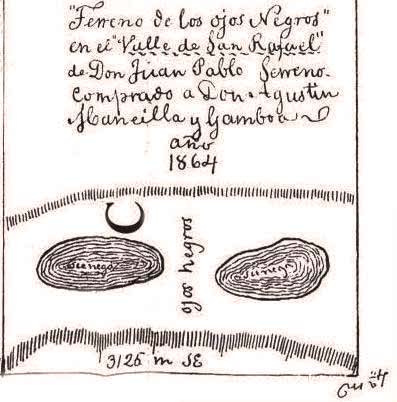 "Terreno de los ojos Negros"
en el "Valle de San Rafael"
de Don Juan Pablo Serreno.
Comprado a Don Agustin
Mancilla y Gamboa
año
1864
C
cienega
ojos negros
cienega
3125 m SE